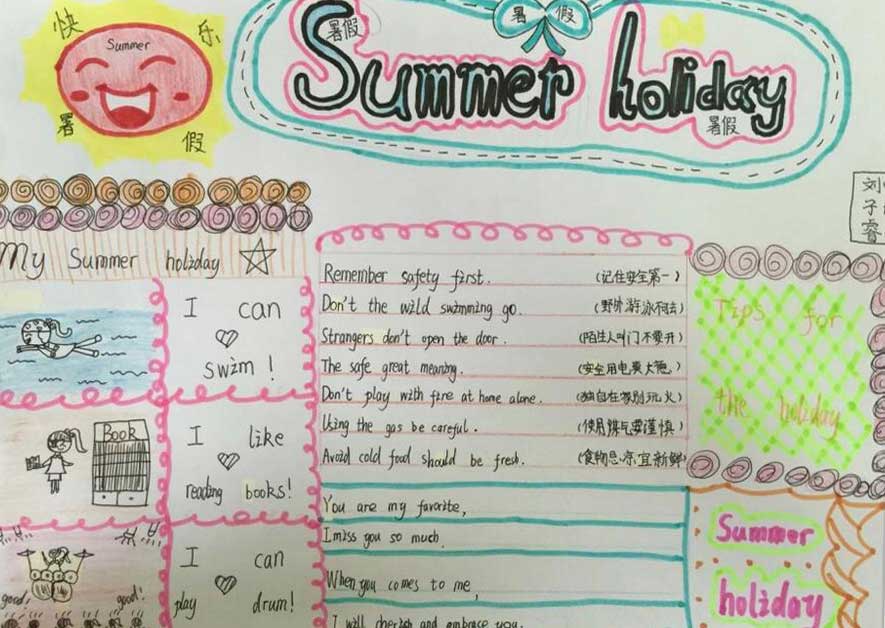 快 乐
Summer
暑 假
暑 假
Summer holiday
暑假
暑假
刘子睿
My Summer holiday
I can
swim!
Book
I like
reading books!
good!
good!
I can
play drum!
Remember safety first. (记住安全第一)
Don't the wild swimming go. (野外游泳不可去)
Strangers don't open the door. (陌生人叫门不要开)
The safe great meaning. (安全用电
Don't play with fire at home alone. (独自在家别玩火)
Using the gas be careful. (使用煤气要谨慎)
Avoid cold food should be fresh. (食物忌凉宜新鲜)
Tips for
the holiday
You are my favorite,
I miss you so much
When you comes to me,
I will cherish and embrace you.
Summer
holiday